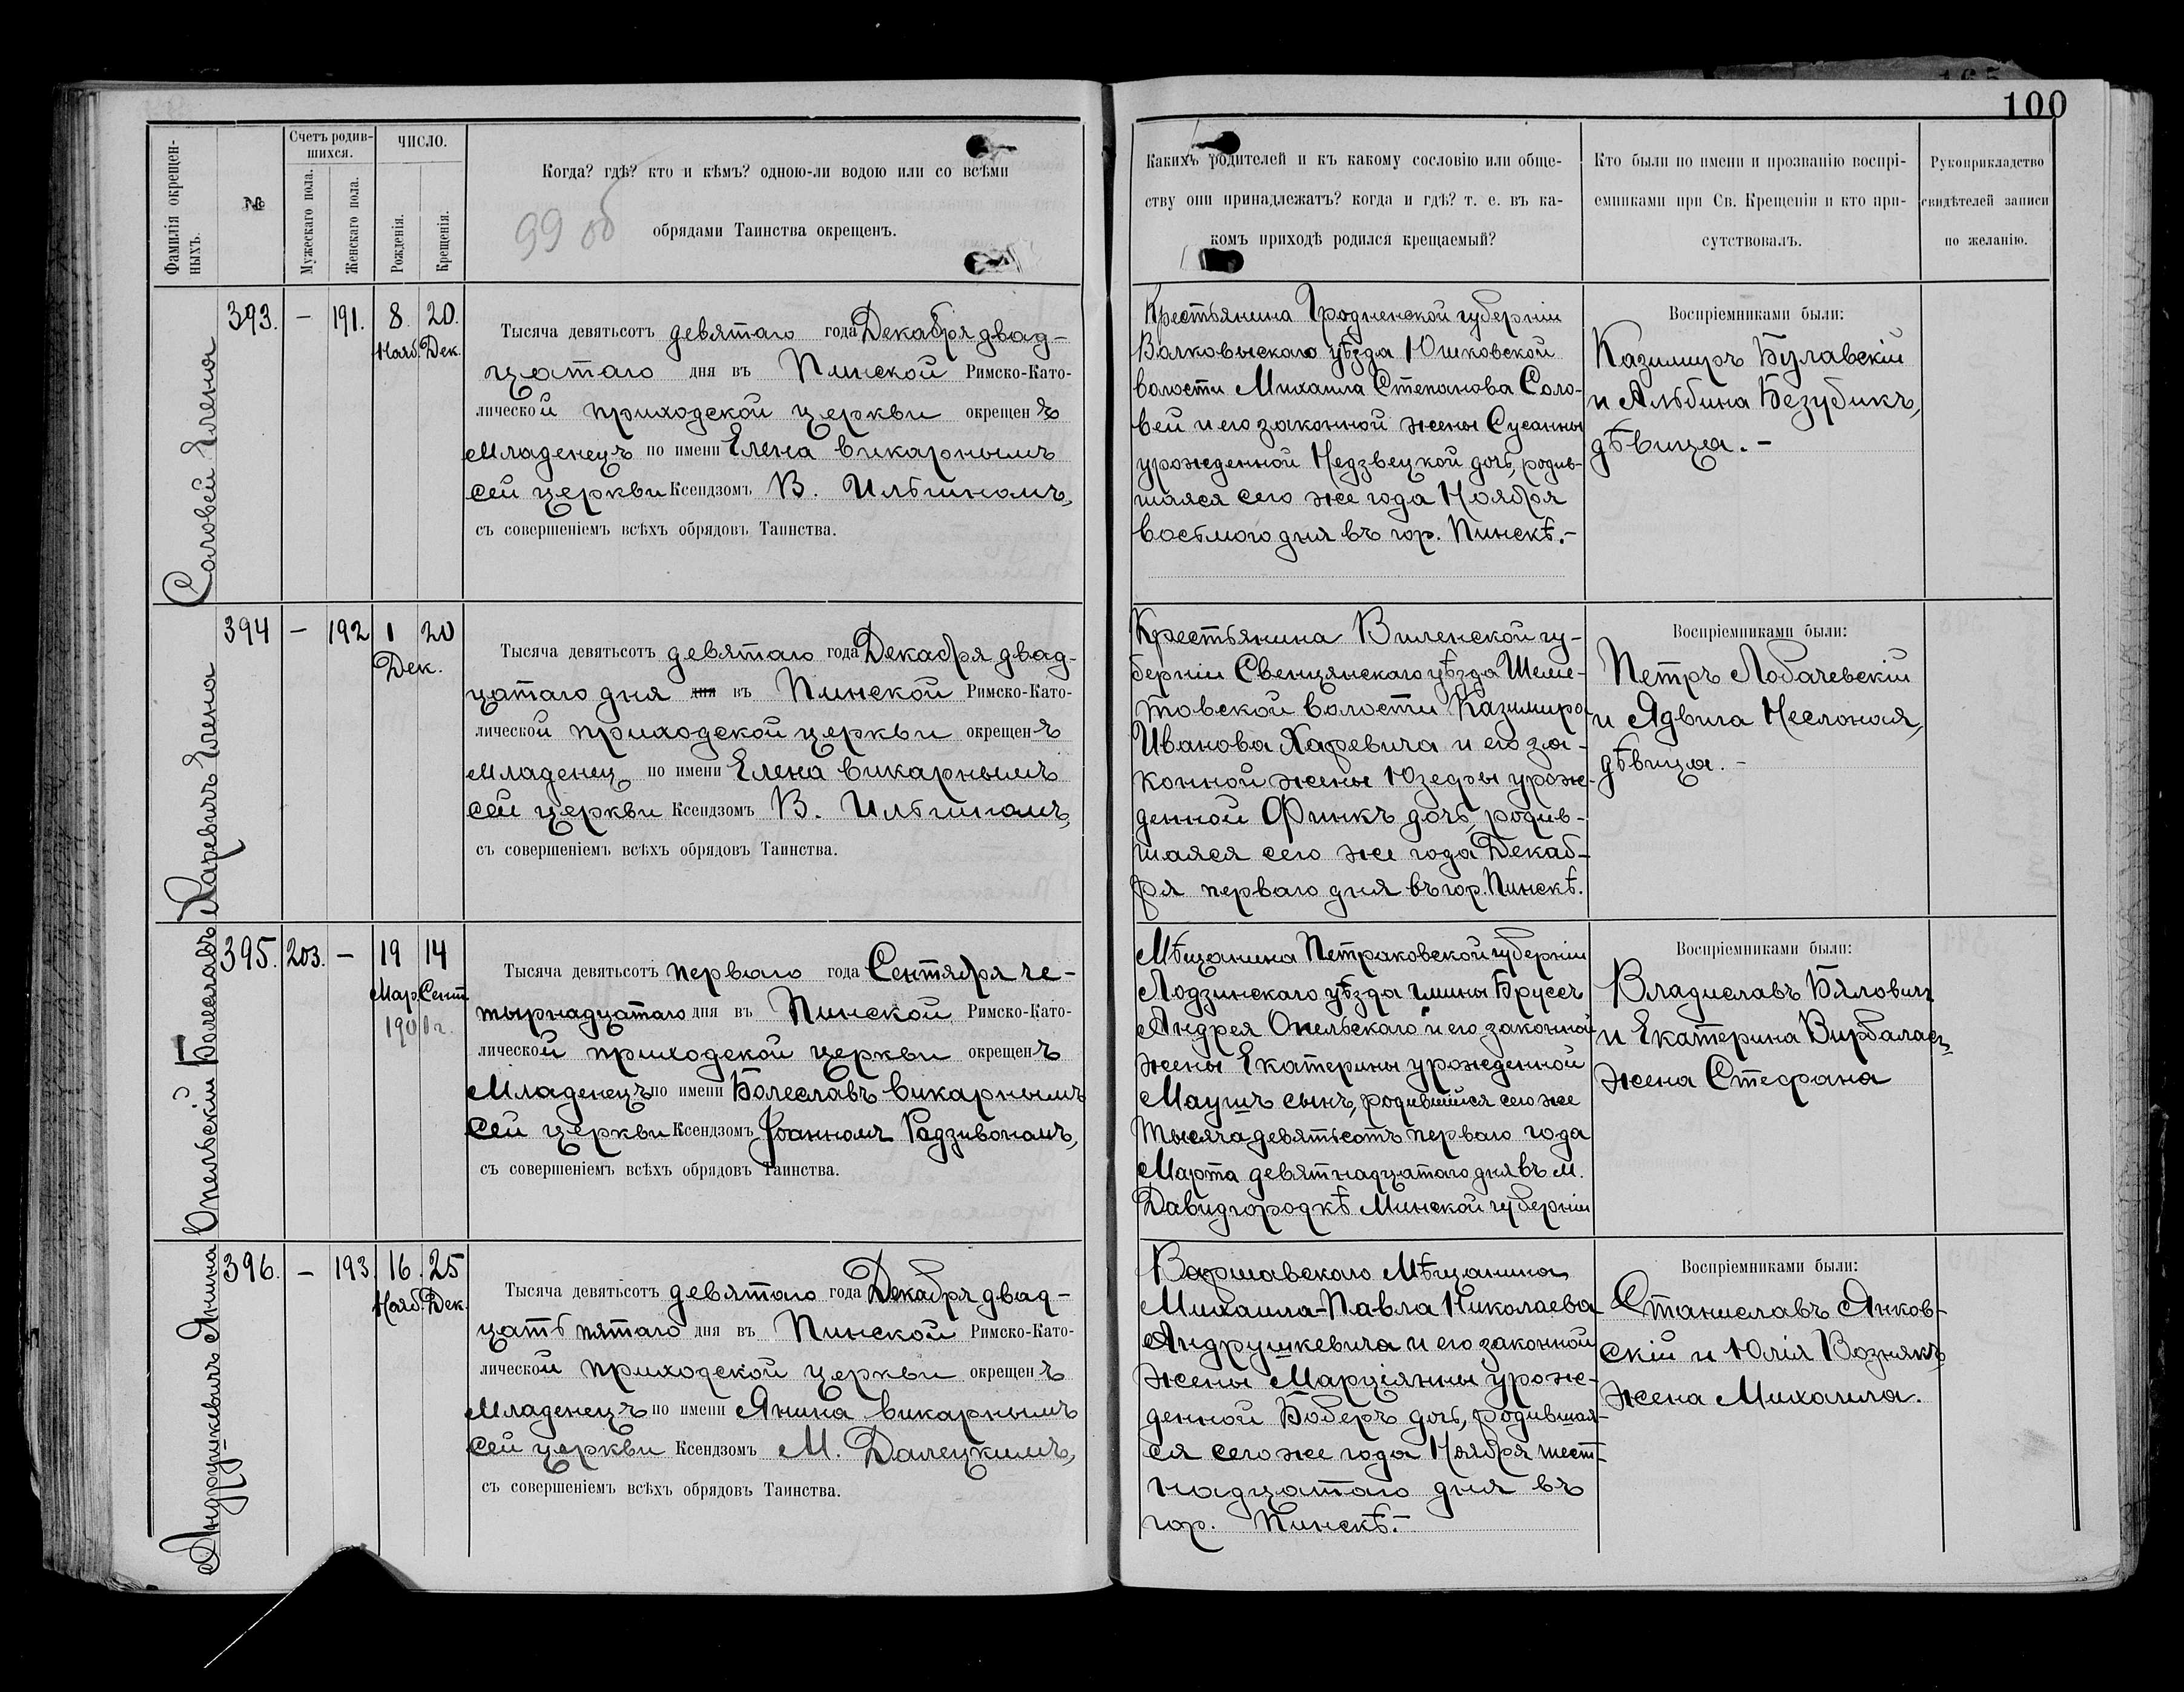 165
100
Фамилія окрещен-
ныхъ.
№
Счетъ родив-
шихся.
Мужескаго пола.
Женскаго пола.
ЧИСЛО.
Рожденія.
Крещенія.
Когда? гдѣ? кто и кѣмъ? одною-ли водою или со всѣми
обрядами Таинства окрещенъ.
99 об
Какихъ родителей и къ какому сословію или обще-
ству они принадлежатъ? когда и гдѣ? т. е. въ ка-
комъ приходѣ родился крещаемый?
Кто были по имени и прозванію воспрі-
емниками при Св. Крещеніи и кто при-
сутствовалъ.
Рукоприкладство
свидѣтелей записи
по желанію.
Соловей Елена
393. – 191. 8. 20.
Нояб. Дек.
Тысяча девятьсотъ девятаго года Декабря двад-
цатаго дня въ Пинской Римско-Като-
лической приходской церкви окрещенъ
младенецъ по имени Елена викарнымъ
сей церкви Ксендзомъ В. Ильгиномъ,
съ совершеніемъ всѣхъ обрядовъ Таинства.
Крестьянина Гродненской губерніи
Валковыскаго уѣзда Юшковской
волости Михаила Степанова Соло-
вей и его законной жены Сусанны
урожденной Недзвецкой дочь, родив-
шаяся сего же года Ноября
восьмого дня въ гор. Пинскѣ.–
Воспріемниками были:
Казимиръ Булавскій
и Альбина Безубикъ,
дѣвица.–
Харевичъ Елена
394 – 192 1 20
Дек.
Тысяча девятьсотъ девятаго года Декабря двад-
цатаго дня дня въ Пинской Римско-Като-
лической приходской церкви окрещенъ
младенец по имени Елена викарнымъ
сей церкви Ксендзомъ В. Ильгиномъ,
съ совершеніемъ всѣхъ обрядовъ Таинства.
Крестьянина Виленской гу-
берніи Свенцянскаго уѣзда Шеме-
товской волости Казимира
Иванова Харевича и его за-
конной жены Юзефы урож-
денной Финкъ дочь, родив-
шаяся сего же года Декаб-
ря перваго дня въ гор. Пинскѣ.
Воспріемниками были:
Петръ Лобачевскій
и Ядвига Неслоная,
дѣвица.–
Опельскій Болеславъ
395. 203. – 19 14
Мар. Сент.
1901 г.
Тысяча девятьсотъ перваго года Сентября че-
тырнадцатаго дня въ Пинской Римско-Като-
лической приходской церкви окрещенъ
Младенецъ по имени Болеславъ викарнымъ
сей церкви Ксендзомъ Іоанномъ Радзивономъ,
съ совершеніемъ всѣхъ обрядовъ Таинства.
Мѣщанина Петраковской губерніи
Лодзинскаго уѣзда гмины Брусъ
Андрея Опельскаго и его законной
жены Екатерины урожденной
Маушъ сынъ, родившійся сего же
тысяча девятьсотъ перваго года
Марта девятнадцатаго дня въ м.
Давидгородкѣ Минской губерніи
Воспріемниками были:
Владиславъ Бяловичъ
и Екатерина Вирбаласъ,
жена Стефана
Андрушкевичъ Янина
396. – 193 16. 25
Нояб. Дек.
Тысяча девятьсотъ девятаго года Декабря двад-
цать пятаго дня въ Пинской Римско-Като-
лической приходской церкви окрещенъ
Младенецъ по имени Янина викарнымъ
сей церкви Ксендзомъ М. Далецкимъ,
съ совершеніемъ всѣхъ обрядовъ Таинства.
Варшавскаго Мѣщанина
Михаила-Павла Николаева
Андрушкевича и его законной
жены Марціянны урож-
денной Боберъ дочь, родившая-
ся сего же года Ноября шест-
надцатаго дня въ
гор. Пинскѣ.–
Воспріемниками были:
Станиславъ Янков-
скій и Юлія Вознякъ
жена Михаила.